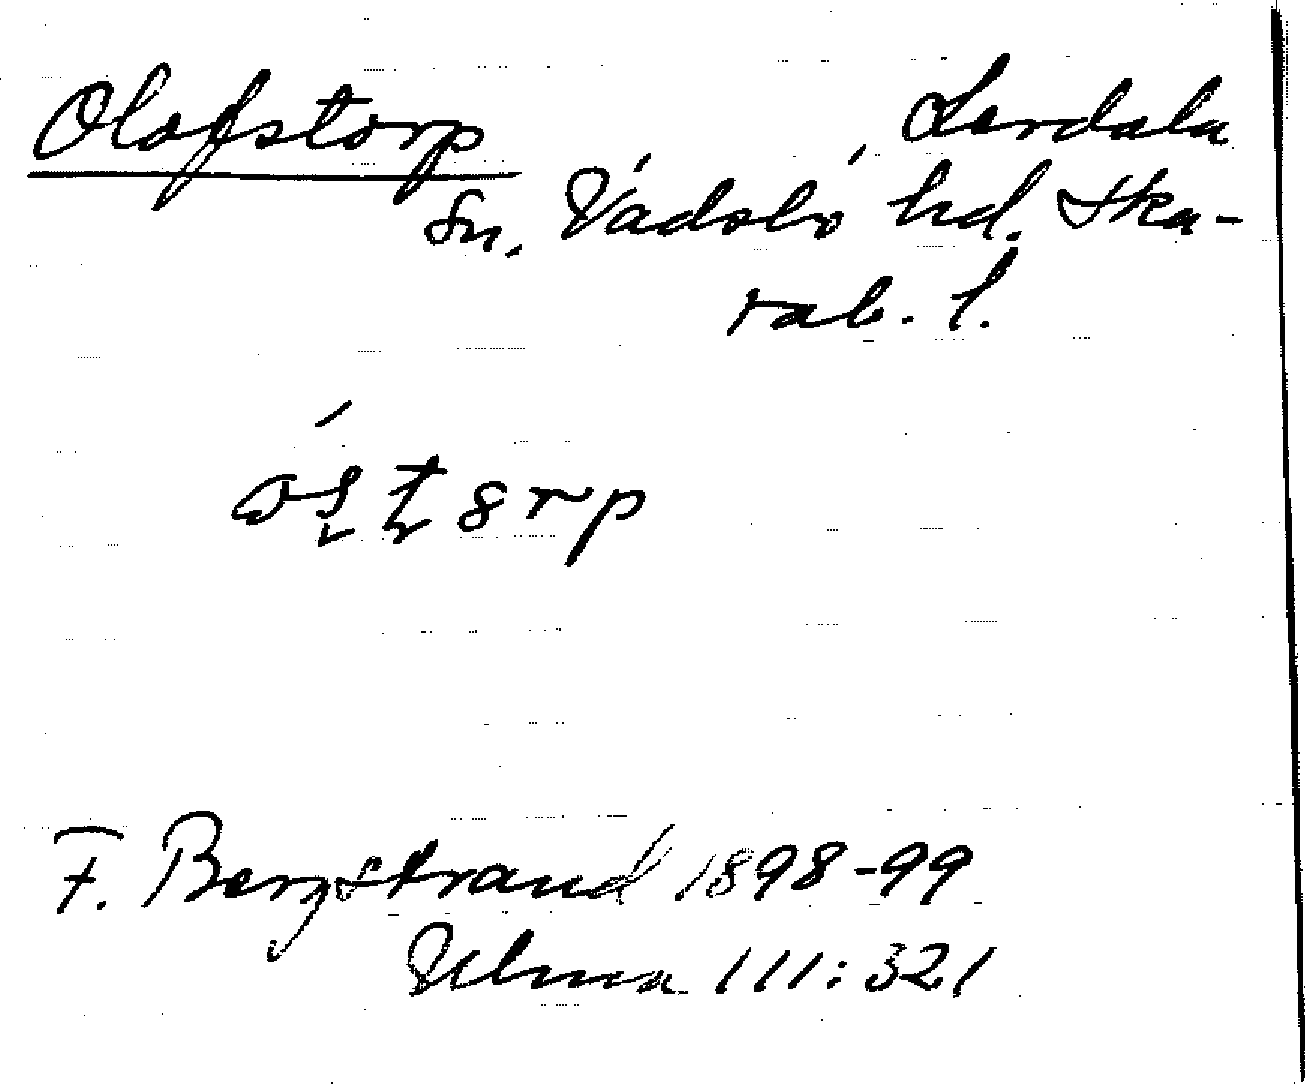 Olofstorp Lerdala
Sn. Vadsbo hd. Ska-
rab. l.
F. Bergstrand 1898-99
Ulma 111:321